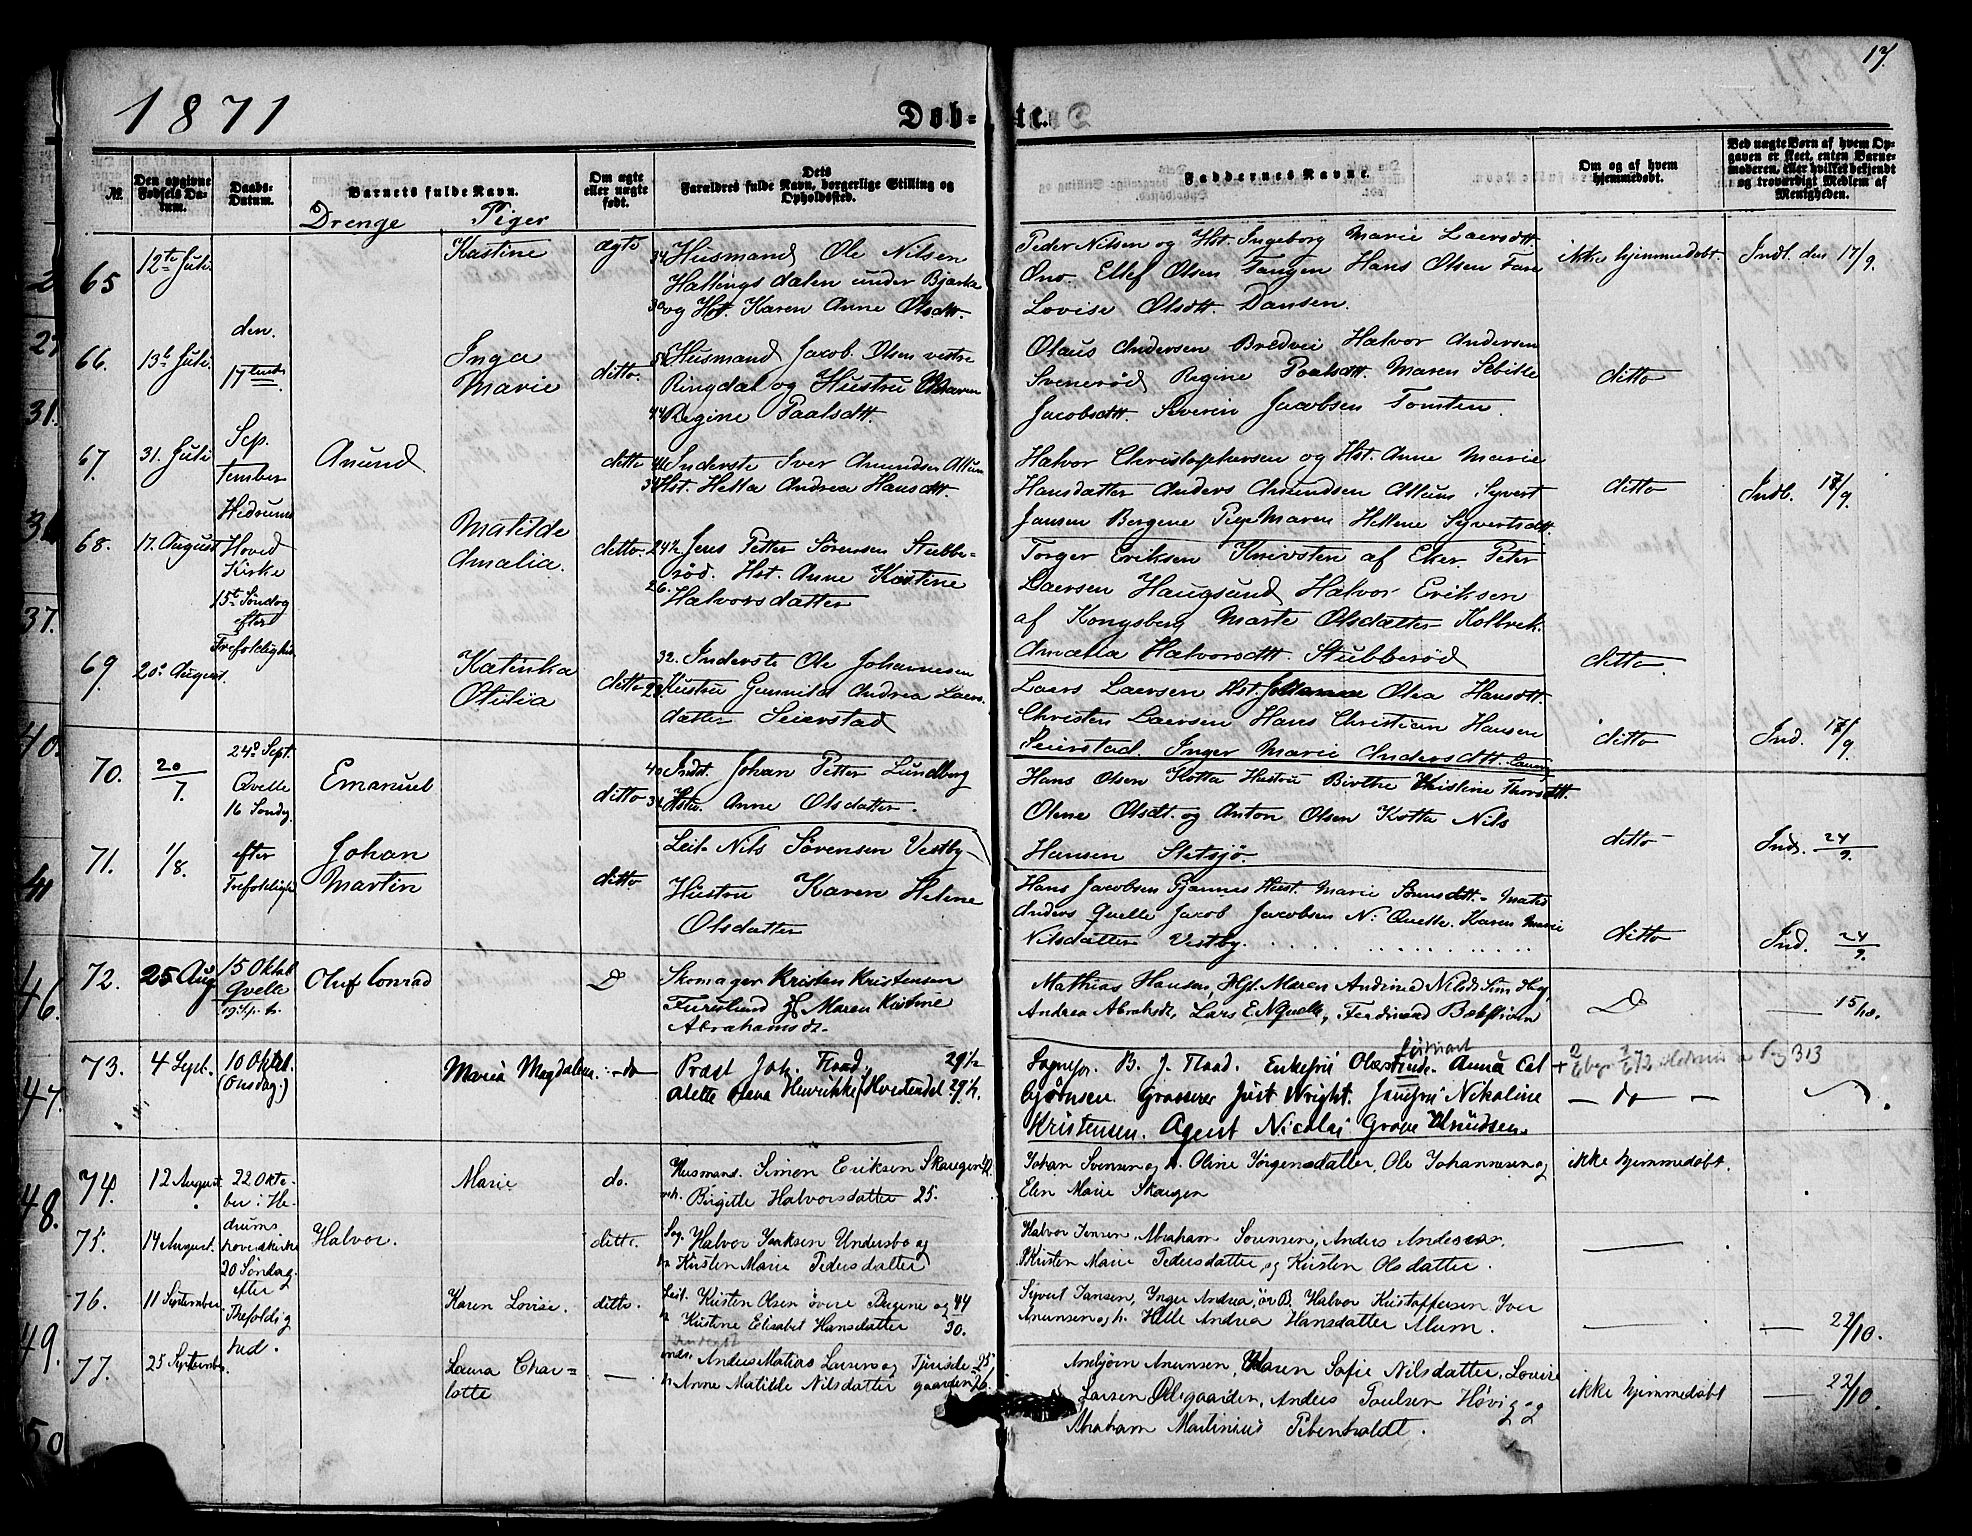 1871
Døb-te.
17.
№
Den opgivne Fødsels Datum.
Daabs-Datum.
Barnets fulde Navn.
Drenge
Piger
Om ægte eller uægte født.
Dets Forældres fulde Navn, borgerlige Stilling og Opholdssted.
Faddernes Navne.
Om og af hvem hjemmedøbt.
Ved uægte Børn af hvem Opgaven er skeet, enten Barnemoderen, eller hvilket bekjendt og troværdigt Medlem af Menigheden.
65
12te Juli
Kastine
ægte
34 Husmand Ole Nilsen
Hallingsdalen under Bjerke
30 og Hst. Karen Anne Olsdtt.
Peder Nilsen og Hst. Ingeborg Marie Laersdtt.
Ono. Ellef Olsen Tangen Hans Olsen
Lovise Olsdtt. Dansen.
ikke hjemmedøbt.
Indl. den 17/9.
66.
13de Juli
den
17tende
Inga
Marie
ditto.
Husmand Jacob Olsen vestre
Ringdal og Hustru Maren
44 Regine Paalsdtt.
Olaus Andersen Bredvei Halvor Andersen
Svenerød Regine Paalsdtt. Maren Sebille
Jacobsdtt. Severin Jacobsen Tomten.
ditto
67.
31. Juli
September
Anund
ditto
Inderste Iver Amundsen Allum
Hst. Hella Andrea Hansdtt.
Halvor Christophersen og Hst. Anne Marie
Hansdatter Anders Amundsen Allum Syvert
Jansen Bergene Pige Maren Hellene Syvertsdtt.
ditto
Indb. 17/9
68.
17. August
Hedrums
Hoved
Kirke
15de Søndag
efter
Trefoldighed
Matilde
Amalia.
ditto.
24½ Jens Petter Sørensen Stubbe-
rød. Hst. Anne Kastine
26. Halvorsdatter
Torger Eriksen Knivsten af Eker Peter
Laersen Haugsund Halvor Eriksen
af Kongsberg Marte Olsdatter Kolbrek.
Amalia Halvorsdtt. Stubberød
ditto
69.
20de August.
Katinka
Otilia
ditto
32. Inderste Ole Johannesen
Hustru Gunnild Andrea Laers-
datter Seierstad
Laers Laersen Hst. Johanne Olea Hansdtt.
Christen Laersen Hans Christian Hansen
Seierstad. Inger Marie Andersdtt.
ditto
Ind. 17/9
70.
20/7.
24de Sept.
Qvelle
16 Søndg.
Emanuel
ditto
40 Indst. Johan Petter Lundberg
34 Hstru. Anne Olsdatter.
Hans Olsen Kotta Hustru Birthe Christine Thorsdtt.
Olene Olsdt. og Anton Olsen Kotta Nils
Hansen Sletsjø.
ditto
Ind. 24/9.
71.
1/8.
efter
Trefoldighed
Johan
Martin
ditto
Leil. Nils Sørensen Vestby-
Hustru Karen Helene
Olsdatter
Hans Jacobsen Gjønnes Hust. Marie Sørensdtt. Mathis
Anders Quelle Jacob Jacobsen N: Quelle. Karen Marie
Nilsdatter Vestby.
ditto
Ind. 24/9.
72.
25 Aug
15 Oktob
Qvelle
Oluf Conrad
D
Skomager Kristen Kristensen
Furulund & Maren Kristine
Abrahamsdt.
Mathias Hansen, Hst. Maren Andrine Nilsdt Sundby,
Andrea Abrahsdt, Lars E. N Quelle, Ferdinand Bastian
D
15/10.
73.
4 Sept.
10 Oktbr.
(Onsdag.)
Maria Magdalena.
do
Præst Joh. Flood. 29½
Alette Olena Henrikke f. Hvistendal 29½.
Sognepr. B. J. Flood. Enkefru Anna Cel
Kristensen. Agent Nicolai Grove Knudsen.
Grosserer Just Wright. Jomfru Nikoline
do
74.
12 August.
22 Okto-
ber i He-
drums
hovedkirke
20 Søndag
efter
Trefoldig
hed.
Marie
do.
Husmand. Simon Eriksen Skaugen
Birgitte Halvorsdatter 25.
Johan Svensen og h. Oline Jørgensdatter, Ole Johannesen og
Elen Marie Skaugen
ikke hjemmedøbt.
75.
14 August.
Halvor.
ditto.
Halvor Isaksen Undersbo og
h. Kirsten Marie Pedersdatter
Halvor Jensen, Abraham Sørensen, Anders Andersen.
Kirsten Marie Pedersdatter, og Kirsten Olsdatter.
76.
11 September
Karen Lovise.
ditto.
Leil. Kristen Olsen øvre Bergene og 44
h Kirstine Elisabet Hansdatter 30.
Syvert Jansen, Inger Andrea, ø. B. Halvor Kristoffersen Iver
Anunsen og h. Helle Andrea Hansdatter Alum.
22/10.
77.
25 September
Laura Char-
lotte
Anders Matias Larsen og Tjuside 25
h Anne Matilde Nilsdatter gaarden 26.
Arnbjørn Anunsen, Karen Sofie Nilsdatter, Lovise
Larsen Ølegaarden, Anders Paulsen Høvig og
Abraham Martinius Pebenholdt.
ikke hjemmedøbt
22/10.